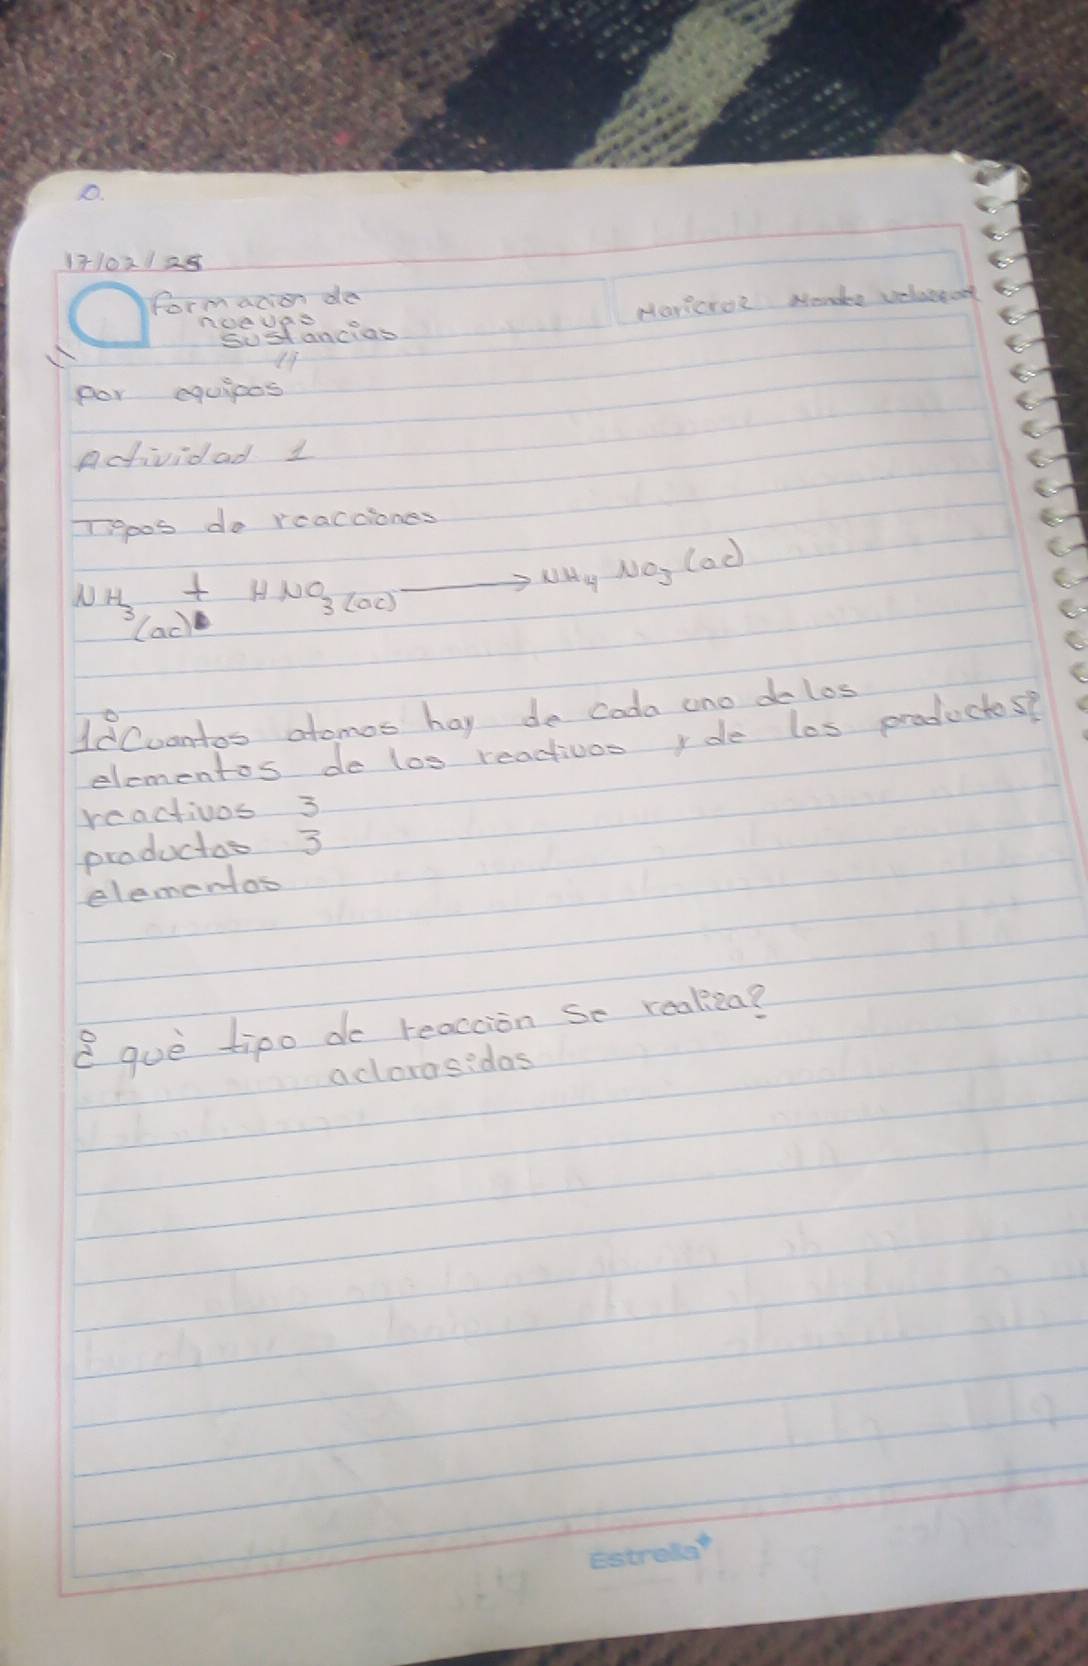 17/02/25
formacion de
nuevas
sustancias
Maricroz
por equipos
Actividad 1
Tipos de reacciones
NH3 (ac) + HNO3 (ac) → NH4 NO3 (ac)
1¿Cuantos atomos hay de cada uno de los
elementos de los reactivos y de los productos?
reactivos 3
productos 3
elementos
¿ què tipo de reacción se realiza?
aclorosidas
Estrella